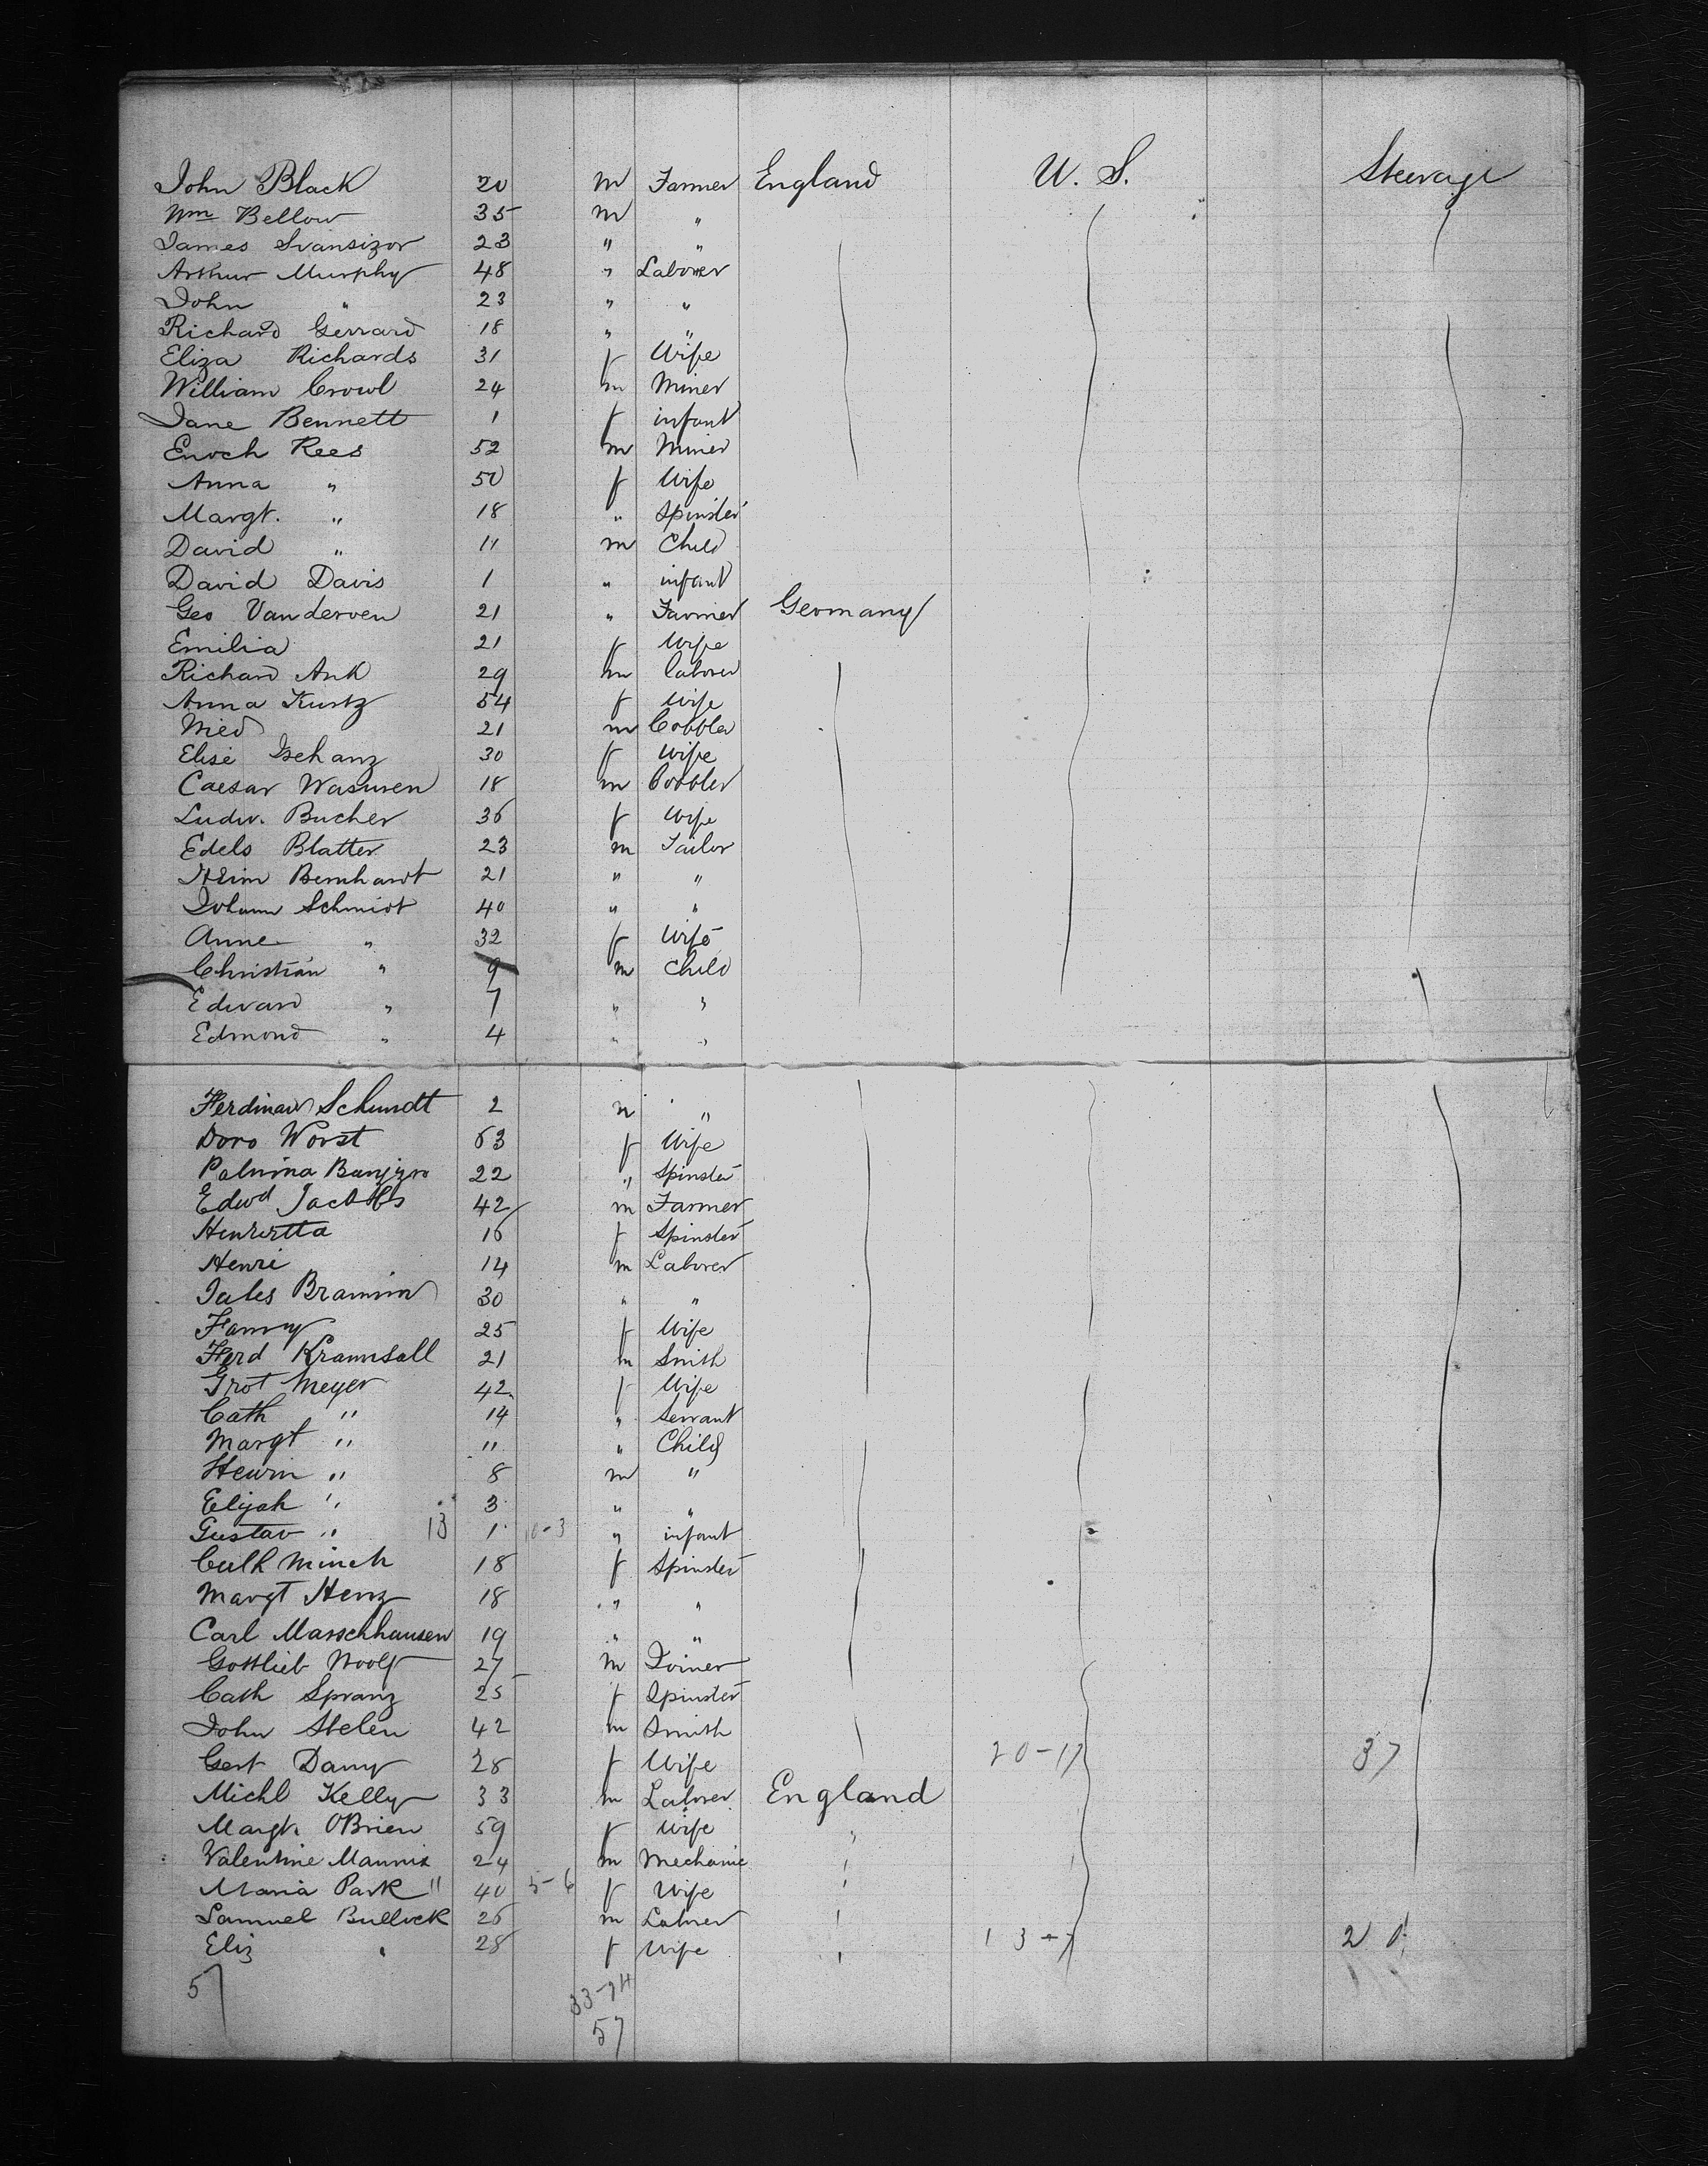 John Black 20 m Farmer England U. S. Steerage
Wm Bellow 35 m "
James Svansizor 23 " "
Arthur Murphy 48 " Laborer
John " 23 " "
Richard Gerrard 18 " "
Eliza Richards 31 f Wife
William Crowl 24 m Miner
Jane Bennett 1 f infant
Enoch Rees 52 m Miner
Anna " 50 f Wife
Margt. " 18 " Spinster
David " 11 m Child
David Davis 1 " infant
Geo Vanderven 21 " Farmer Germany
Emilia 21 f Wife
Richard Ank 29 m laborer
Anna Kurtz 54 f Wife
Nied 21 m Cobbler
Elise 30 f Wife
Caesar 18 m Cobbler
Ludw. Bucher 36 f Wife
Edels Blatter 23 m Tailor
Bernhardt 21 " "
Johann Schmidt 40 " "
Anne " 32 f Wife
Christian " 9 m Child
Edward " 7 " "
Edmond " 4 " "
Ferdinand Schmidt 2 m "
Doro Worst 63 f Wife
22 " Spinster
Edwd Jacobs 42 m Farmer
Henrietta 16 f Spinster
Henri 14 m Laborer
Jules 30 " "
Fanny 25 f Wife
Ferd Kramsall 21 m Smith
Grot Meyer 42 f Wife
Cath " 14 " Servant
Margt " 11 " Child
" 8 m "
Elijah " 3 " "
Gustav " 13 1 10-3 " infant
Minch 18 f Spinster
Margt Henz 18 " "
Carl Masschhausen 19 " "
Gottlieb Woolf 27 m Joiner
Cath Spranz 25 f Spinster
John Stelen 42 m Smith
Gert Damy 28 f Wife 20-17 37
Michl Kelly 33 m Laborer England
Margt. OBrien 59 f Wife "
Valentine Mannix 24 m Mechanic "
Maria Park " 40 5-6 f Wife "
Samuel Bullock 26 m Laborer "
Eliz " 28 f Wife " 13-7 20
57 33-24
57